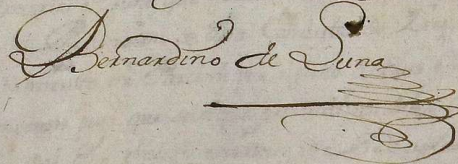 Bernardino de Luna